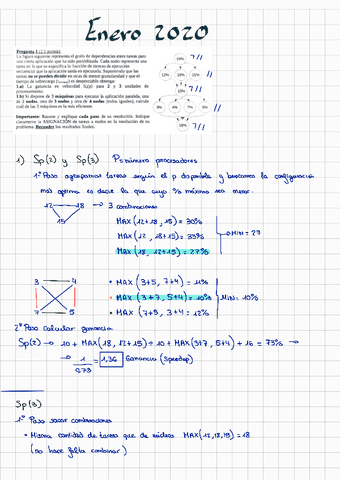 Enero 2020
Pregunta 1 (2.5 puntos).
La figura siguiente representa el grafo de dependencias entre tareas para
una cierta aplicación que ha sido paralelizada. Cada nodo representa una
tarea en la que se especifica la fracción de tiempo de ejecución
secuencial que la aplicación tarda en ejecutarla. Suponiendo que las
tareas no se pueden dividir en otras de menor granularidad y que el
tiempo de sobrecarga es despreciable obtenga:
1.a) La ganancia en velocidad Sp(p) para 2 y 3 unidades de
procesamiento.
de 2 nodos, otra de 3 nodos y otra de 4 nodos (nodos iguales), explicite
cuál de las 3 máquinas es la más eficiente.
Importante: Razone y explique cada paso de su resolución. Indique
claramente la ASIGNACIÓN de tareas a nodos en la resolución de su
problema. Recuadre los resultados finales.
10% 7//
12% 18% 15% //
10% 7//
3% 4% 7% 5% //
7//
1) Sp(2) y Sp(3) P=número procesadores
1º Paso agrupamos tareas según el p disponible y buscamos la configuración
más optima es decir la que cuyo % máximo sea menor.
12 18 → 3 combinaciones
15
MAX(12+18, 15) = 30%
MAX(12, 18+15) = 33% → MIN = 27
MAX(18, 12+15) = 27%
3 4 • MAX(3+5, 7+4) = 11%
• MAX(3+7, 5+4) = 10% MIN = 10%
7 5 • MAX(7+5, 3+4) = 12%
2º Paso calcular ganancia
Sp(2) → 10 + MAX(18, 12+15) + 10 + MAX(3+7, 5+4) + 16 = 73% →
→ 1/0.73 = 1,36 Ganancia (Speedup)
Sp(3)
1º Paso sacar combinaciones
• Misma cantidad de tareas que de núcleos MAX(12,18,15) = 18
(no hace falta combinar)